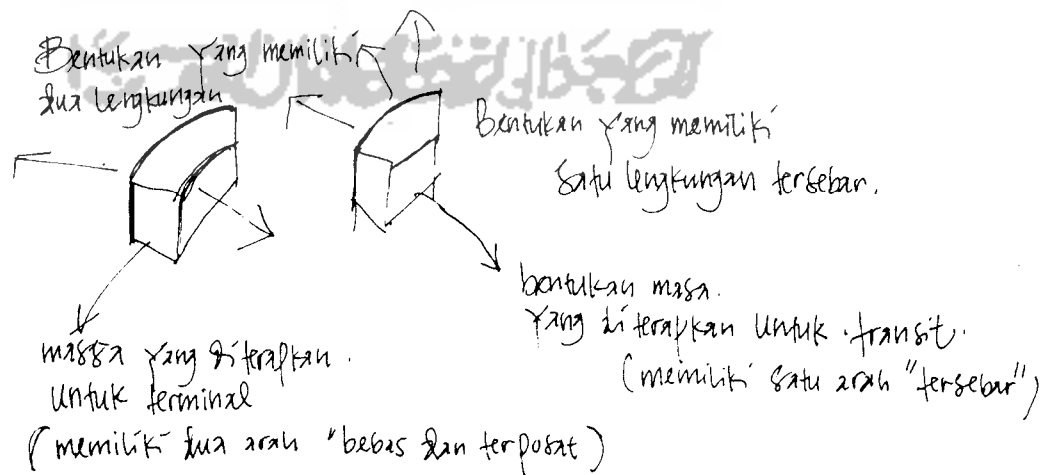 Bentukan yang memiliki
dua lengkungan
Bentukan yang memiliki
satu lengkungan tersebar.
bentukan masa.
yang diterapkan untuk transit.
(memiliki satu arah "tersebar")
massa yang diterapkan.
untuk terminal
(memiliki dua arah "bebas dan terpusat)